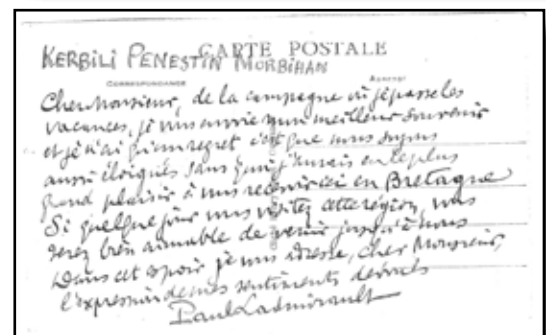 CARTE POSTALE
KERBILI PENESTIN MORBIHAN
CORRESPONDANCE
Cher Monsieur, de la campagne où je passe les
vacances, je vous envoie mon meilleur souvenir
et je n'ai qu'un regret c'est que nous soyons
aussi éloignés sans quoi j'aurais eu le plus
grand plaisir à vous recevoir ici en Bretagne
Si quelque jour vous visitez cette région, vous
serez bien aimable de venir jusqu'à nous
Dans cet espoir je vous adresse, cher Monsieur,
l'expression de mes sentiments dévoués
Paul Ladmirault